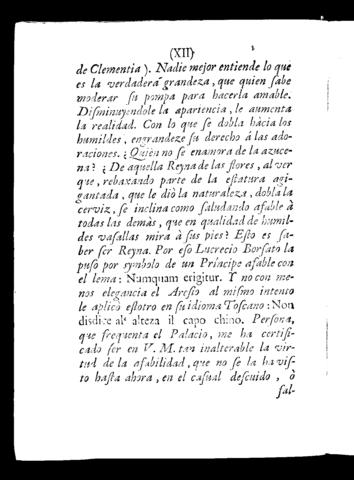 (XII)
de Clementia). Nadie mejor entiende lo que
es la verdadera grandeza, que quien sabe
moderar su pompa para hacerla amable.
Disminuyendole la apariencia, le aumenta
la realidad. Con lo que se dobla hàcia los
humildes, engrandeze su derecho á las ado-
raciones. ¿Quien no se enamora de la azuce-
na? ¿De aquella Reyna de las flores, al ver
que, rebaxando parte de la estatura agi-
gantada, que le diò la naturaleza, dobla la
cerviz, se inclina como saludando afable à
todas las demàs, que en qualidad de humil-
des vasallas mira à sus pies? Esto es sa-
ber ser Reyna. Por eso Lucrecio Borsato la
puso por symbolo de un Principe afable con
el lema: Numquam erigitur. Y no con me-
nos elegancia el Aresio al mismo intento
le aplicò estotro en su idioma Toscano: Non
disdice al' alteza il capo chino. Persona,
que frequenta el Palacio, me ha certifi-
cado ser en V. M. tan inalterable la vir-
tud de la afabilidad, que no se la ha vis-
to hasta ahora, en el casual descuido, ò
fal-